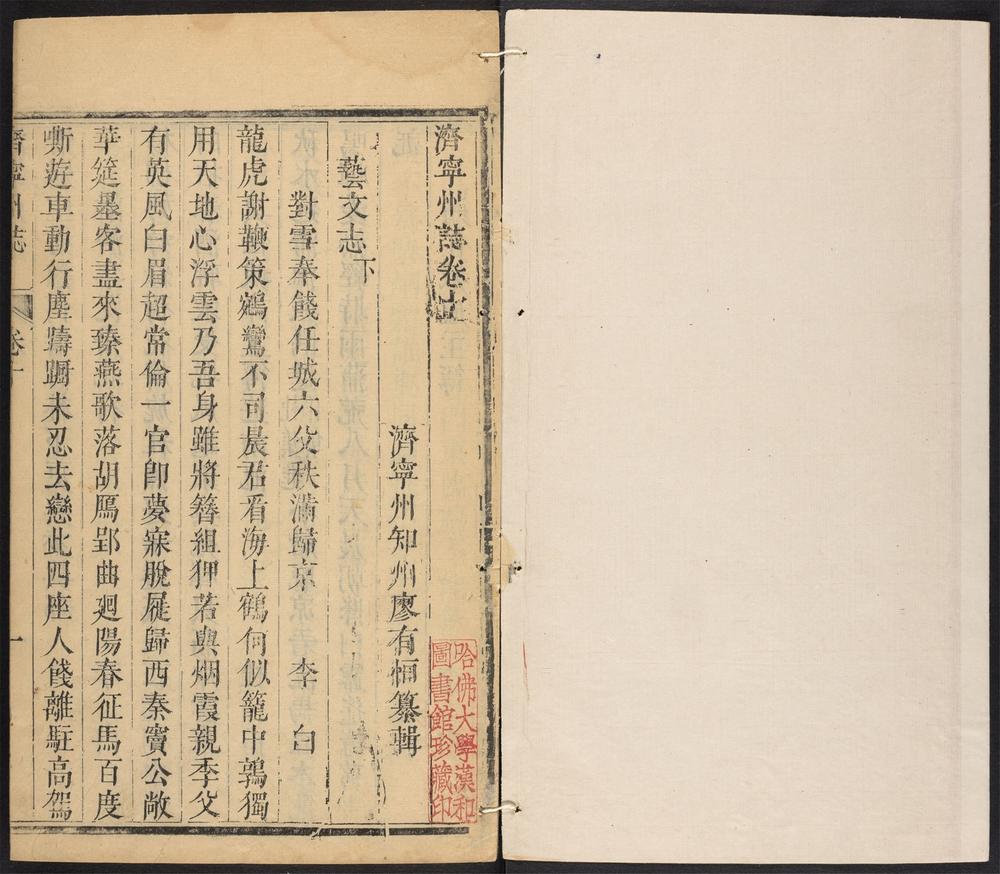 濟寧州誌卷
濟寧州知州廖有恒纂輯
藝文志下
對雪奉餞任城六父秩滿歸京 李白
龍虎謝鞭策鵷鸞不司晨君看海上鶴何似籠中鶉獨
用天地心浮雲乃吾身雖將簪組狎若與烟霞親季父
有英風白眉超常倫一官卽夢寐脫屣歸西秦竇公敞
華筵墨客盡來臻燕歌落胡鴈郢曲廻陽春征馬百度
嘶遊車動行塵躊躕未忍去戀此四座人餞離駐高駕
濟寧州誌 卷十 一
哈佛大學漢和
圖書館珍藏印